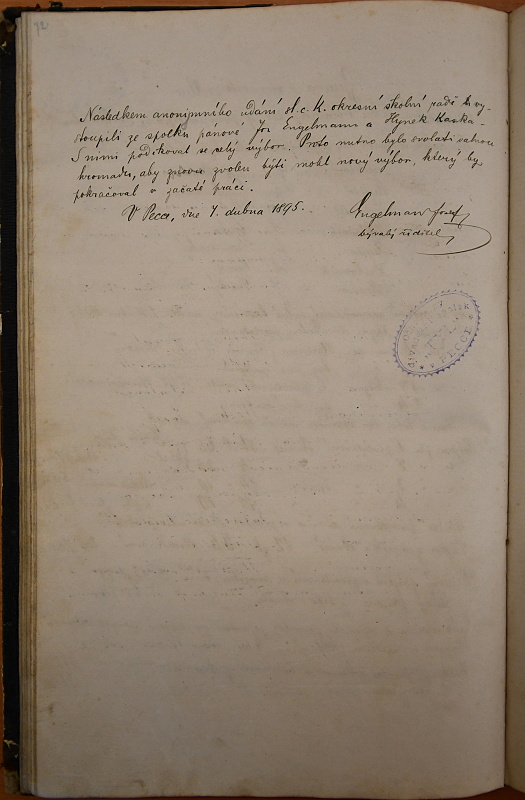 92.
Následkem anonymního udání sl. c. k. okresní školní radě vy-
stoupili ze spolku pánové Jos Engelmann a Hynek Kaska.
S nimi poděkoval se celý výbor. Proto nutno bylo svolati valnou
hromadu, aby znovu zvolen býti mohl nový výbor, který by
pokračoval v začaté práci.
V Pecce, dne 7. dubna 1895.
Engelmann Josef
bývalý ředitel
PECCE